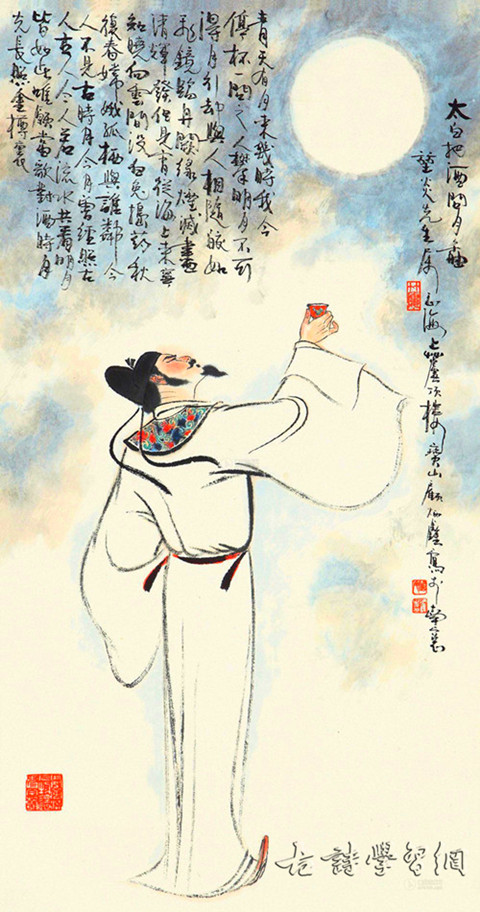 太白把酒問月圖
先生屬正海上
寶山顧
青天有月來幾時我今
停杯一問之人攀明月不可
得月行却與人相隨皎如
飛鏡臨丹闕綠煙滅盡
清輝發但見宵從海上來寧
知曉向雲間没白兔搗藥秋
復春嫦娥孤栖與誰鄰今
人不見古時月今月曾經照古
人古人今人若流水共看明月
皆如此唯願當歌對酒時月
光長照金樽裏
詩學網